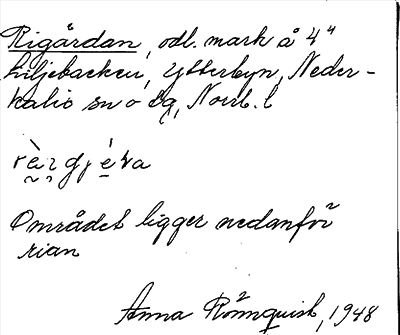 Rigårdan, odl. mark å 4"
Liljebacken, Ytterbyn, Neder-
kalix sn o tg, Norrb. l
Området ligger nedanför
rian
Anna Rönnquist, 1948